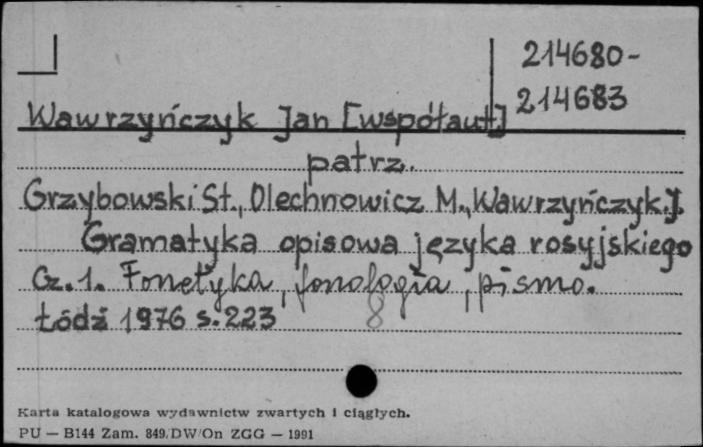 214680-
214683
Wawrzyńczyk Jan [współaut]
patrz.
Grzybowski St., Olechnowicz M., Wawrzyńczyk J.
Gramatyka opisowa języka rosyjskiego
Cz. 1. Fonetyka, fonologia, pismo.
Łódź 1976 s. 223
8
Karta katalogowa wydawnictw zwartych i ciągłych.
PU — B144 Zam. 849/DW/On ZGG — 1991